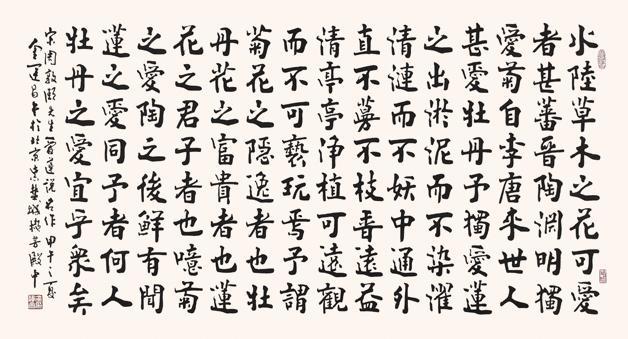 水陸草木之花可愛
者甚蕃晉陶淵明獨
愛菊自李唐來世人
甚愛牡丹予獨愛蓮
之出淤泥而不染濯
清漣而不妖中通外
直不蔓不枝香遠益
清亭亭淨植可遠觀
而不可褻玩焉予謂
菊花之隱逸者也牡
丹花之富貴者也蓮
花之君子者也噫菊
之愛陶之後鮮有聞
蓮之愛同予者何人
牡丹之愛宜乎衆矣
宋周敦頤先生愛蓮説 甲午之夏
金運昌書於北京